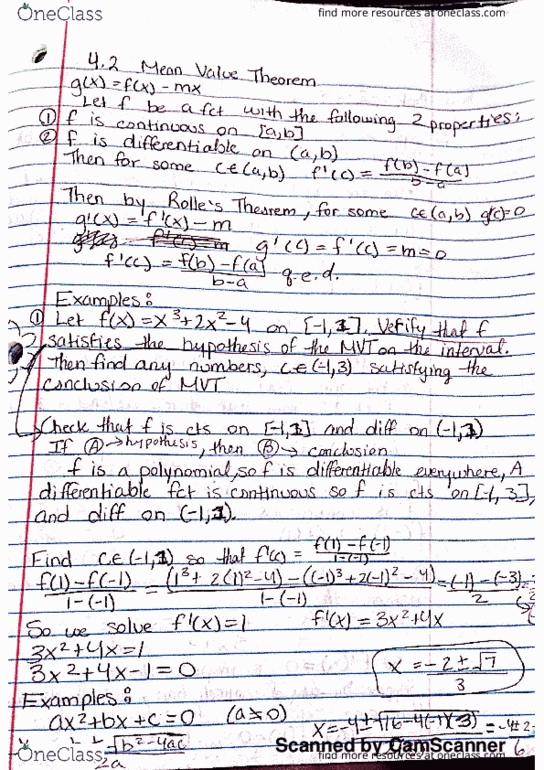 OneClass
find more resources at oneclass.com
4.2 Mean Value Theorem
g(x) = f(x) - mx
Let f be a fct with the following 2 properties:
① f is continuous on [a,b]
② f is differentiable on (a,b)
Then for some c∈(a,b) f'(c) = f(b)-f(a) / b-a
Then by Rolle's Theorem, for some c∈(a,b) g'(c)=0
g'(x) = f'(x) - m
g'(c) = f'(c) = m = 0
f'(c) = f(b)-f(a) / b-a q.e.d.
Examples:
① Let f(x) = x³+2x²-4 on [-1,1]. Verify that f
satisfies the hypothesis of the MVT on the interval.
Then find any numbers, c∈(-1,3) satisfying the
conclusion of MVT
Check that f is cts on [-1,1] and diff on (-1,1)
If Ⓐ→hypothesis, then Ⓑ→ conclusion
f is a polynomial, so f is differentiable everywhere, A
differentiable fct is continuous so f is cts on [-1,3],
and diff on (-1,1).
Find c∈(-1,1) so that f'(c) = f(1)-f(-1) / 1-(-1)
f(1)-f(-1) / 1-(-1) = (1³+2(1)²-4)-((-1)³+2(-1)²-4) / 1-(-1) = (-1)-(-3) / 2
So we solve f'(x)=1 f'(x) = 3x²+4x
3x²+4x=1
3x²+4x-1=0
x = -2±√7 / 3
Examples:
ax²+bx+c=0 (a≠0)
x = -4±√16-4(-1)(3) / 6 = -4±2
√b²-4ac / 2a
Scanned by CamScanner
OneClass
find more resources at oneclass.com